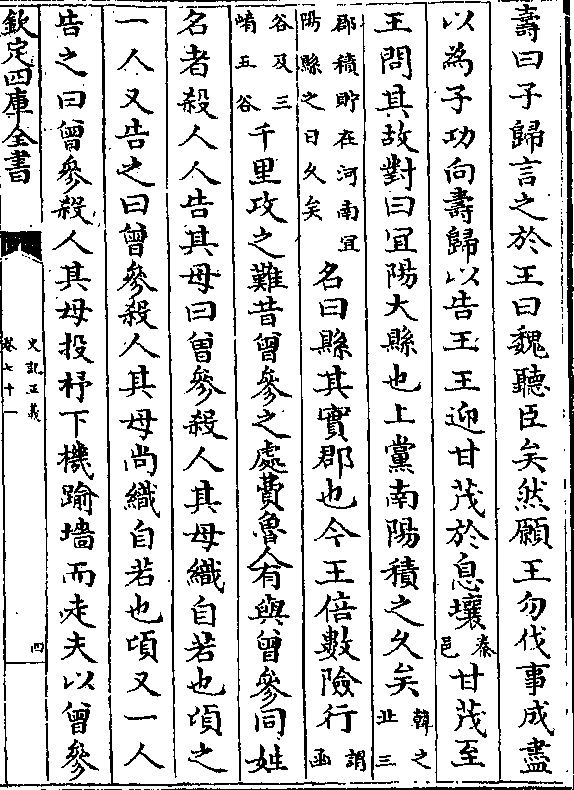 壽曰子歸言之於王曰魏聽臣矣然願王勿伐事成盡
以為子功向壽歸以告王王迎甘茂於息壤秦邑甘茂至
王問其故對曰宜陽大縣也上黨南陽積之久矣韓之北三
郡積貯在河南宜陽縣之日久矣名曰縣其實郡也今王倍數險行謂函
谷及三崤五谷千里攻之難昔曾參之處費魯人有與曾參同姓
名者殺人人告其母曰曾參殺人其母織自若也頃之
一人又告之曰曾參殺人其母尚織自若也頃又一人
告之曰曾參殺人其母投杼下機踰墻而走夫以曾參
欽定四庫全書
史記正義
卷七十一
四